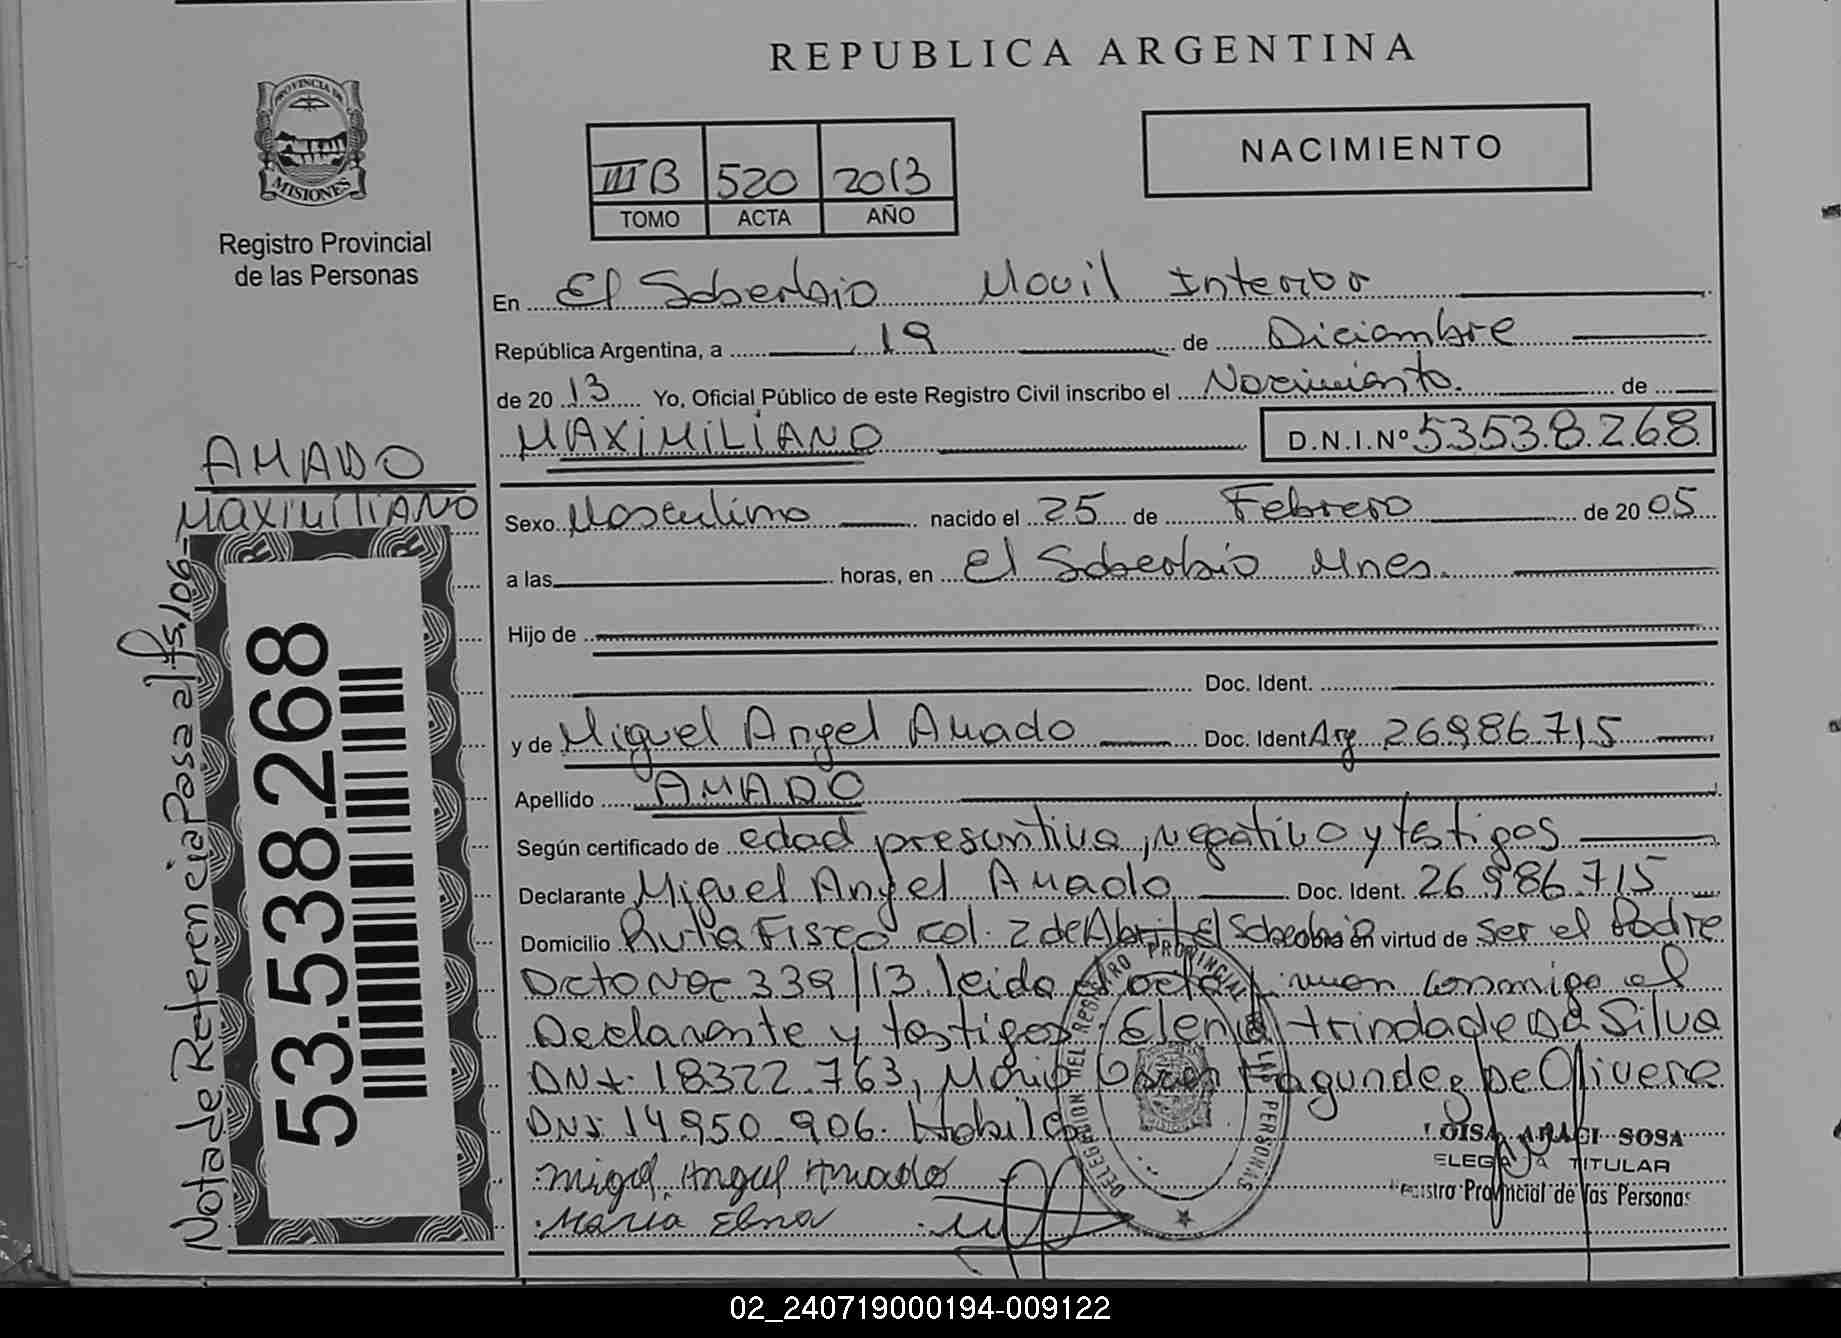 REPUBLICA ARGENTINA
PROVINCIA DE
MISIONES
Registro Provincial
de las Personas
III B 520 2013
TOMO ACTA AÑO
NACIMIENTO
En El Soberbio Movil Interior
República Argentina, a 19 de Diciembre
de 2013 Yo, Oficial Público de este Registro Civil inscribo el Nacimiento. de
MAXIMILIANO D.N.I.Nº 53538268
AMADO
MAXIMILIANO
Sexo Masculino nacido el 25 de Febrero de 2005
a las horas, en el Soberbio Mnes.
Hijo de
Doc. Ident.
y de Miguel Angel Amado Doc. Ident Arg 26986715
Apellido AMADO
Según certificado de edad presuntiva, negativo y testigos
Declarante Miguel Angel Amado Doc. Ident. 26.986.715
Domicilio Ruta Fisco col. 2 de Abril El Soberbio en virtud de Ser el Padre
Dcto Nº 339/13. leido el acta firman conmigo el
Declarante y testigos. Elena trindade Da Silva
DNI. 18322.763, Mario Fagundez De Olivera
DNI 14.950.906.
Migel Angel Amado
Maria Elena
Nota de Referencia Pasa al fs. 106-
53.538.268
DELEGACION DEL REGISTRO PROVINCIAL DE LAS PERSONAS
MISIONES
ARACI SOSA
TITULAR
Registro Provincial de las Personas
02_240719000194-009122